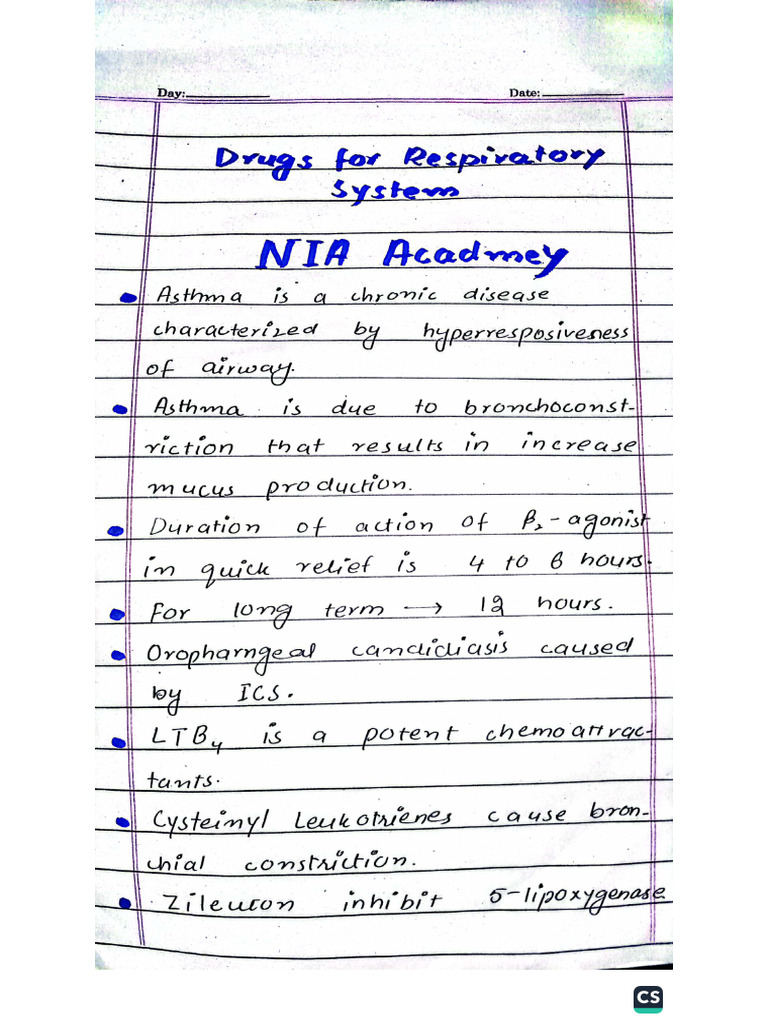 Day:
Date:
Drugs for Respiratory
System
NIA Acadmey
• Asthma is a chronic disease
characterized by hyperresposiveness
of airway.
• Asthma is due to bronchoconst-
riction that results in increase
mucus production.
• Duration of action of β₂-agonist
in quick relief is 4 to 6 hours.
• For long term → 12 hours.
• Oropharngeal candidiasis caused
by ICS.
• LTB₄ is a potent chemoattrac-
tants.
• Cysteinyl Leukotrienes cause bron-
chial constriction.
• Zileuton inhibit 5-lipoxygenase
CS